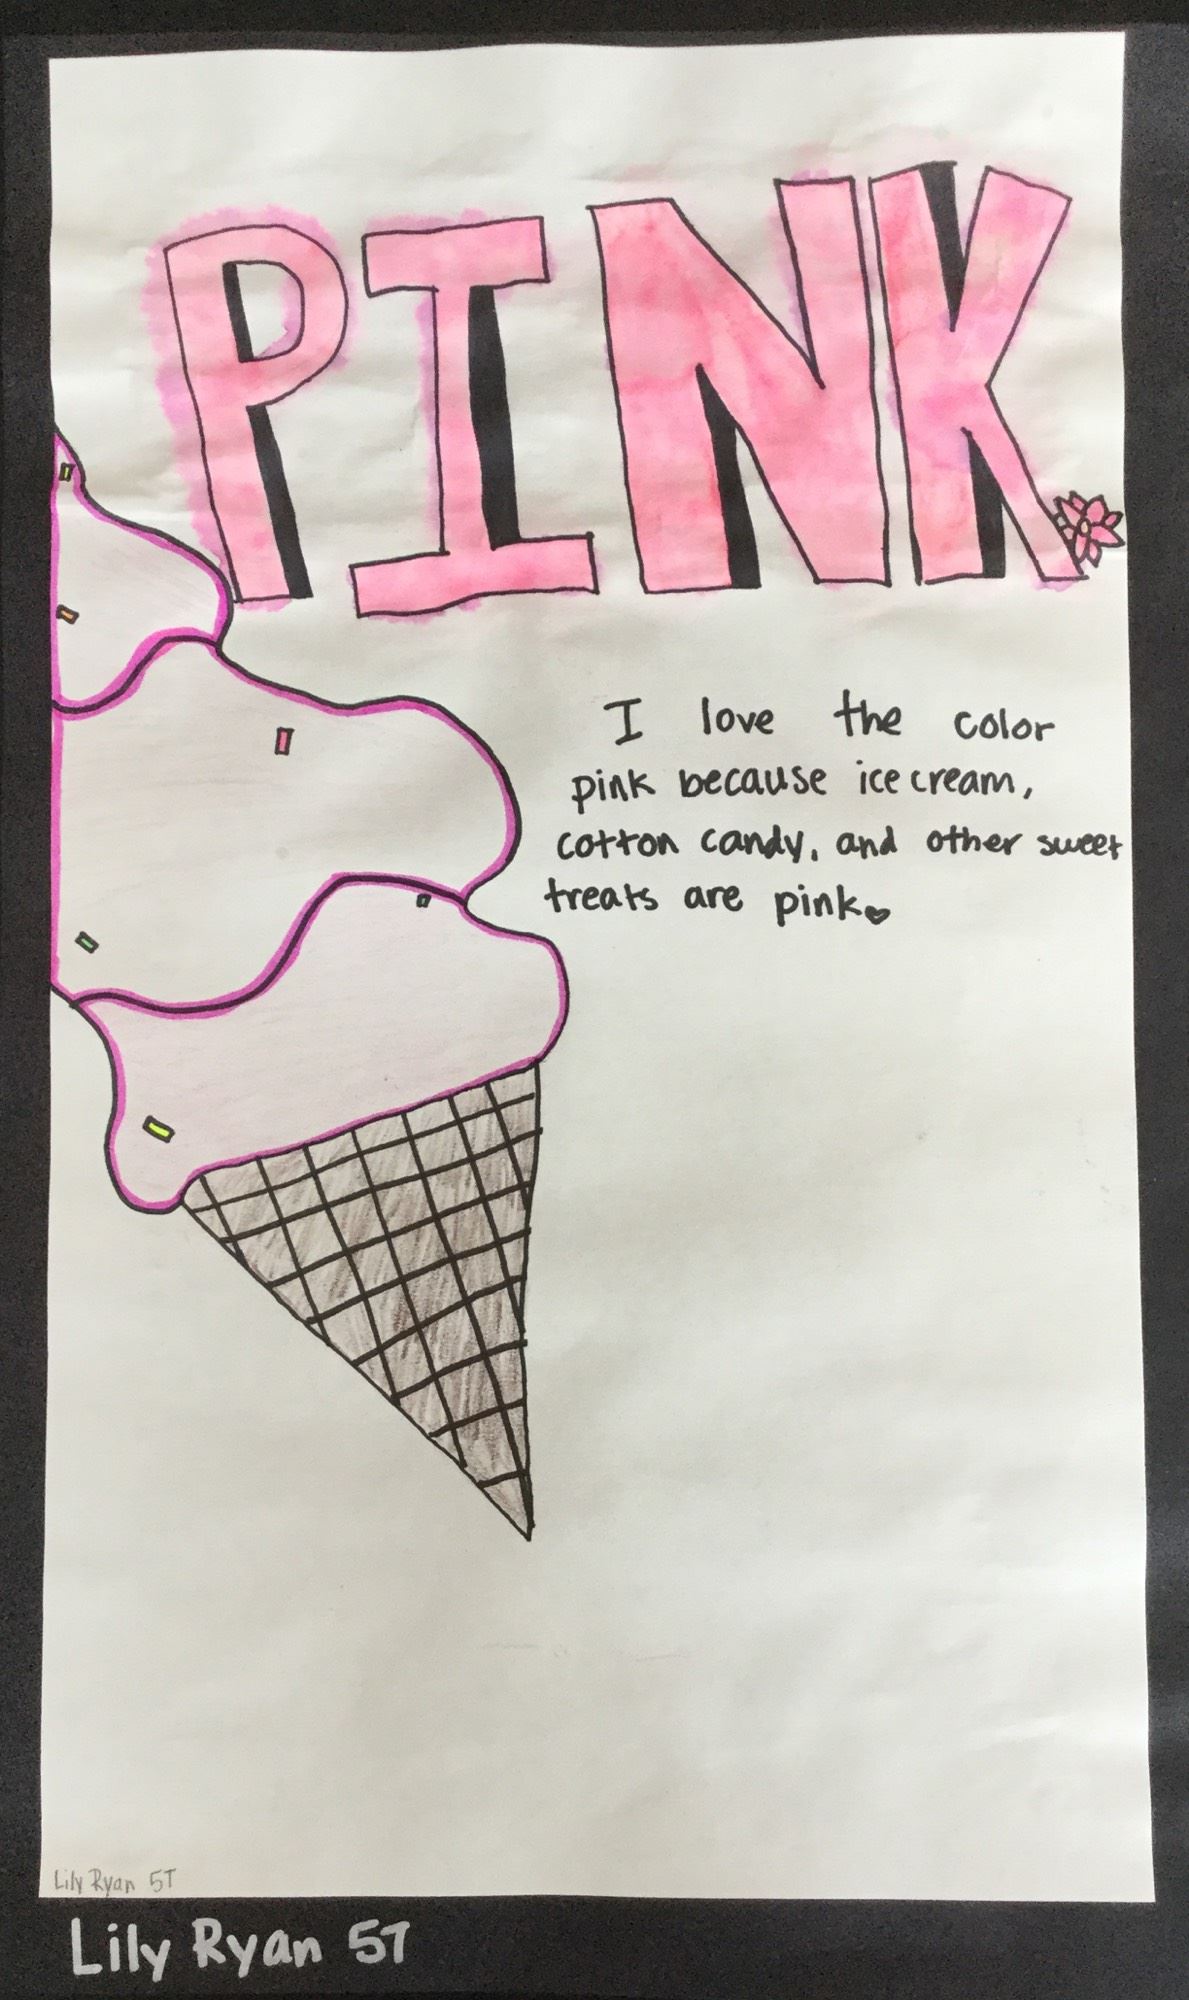 PINK
I love the color
pink because ice cream,
cotton candy, and other sweet
treats are pink.
Lily Ryan 5T
Lily Ryan 5T